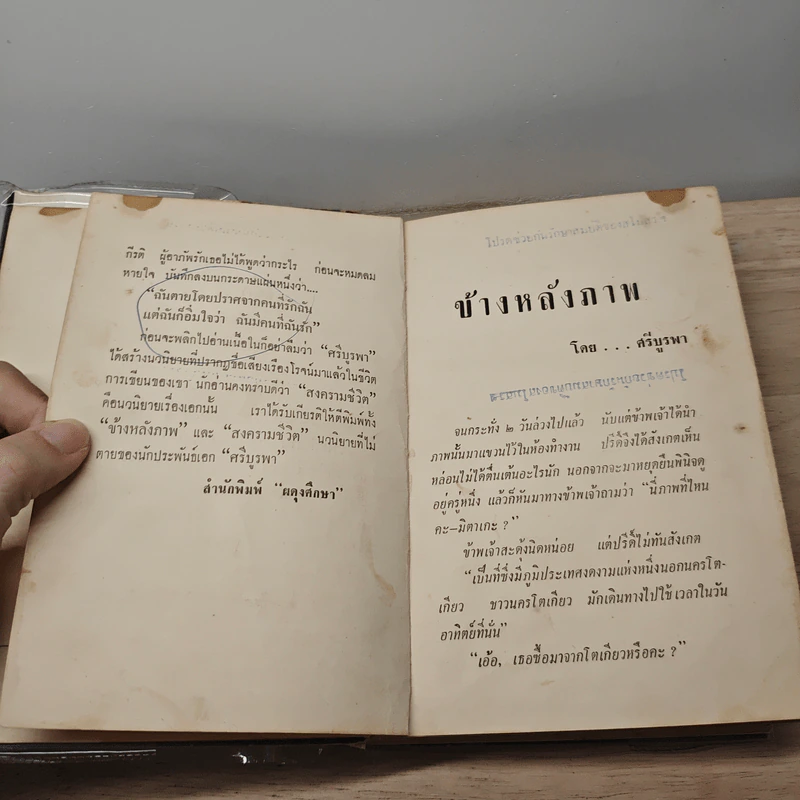 กีรติ ผู้อาภัพรักเธอไม่ได้พูดว่ากระไร ก่อนจะหมดลม
หายใจ บันทึกลงบนกระดาษแผ่นหนึ่งว่า....
“ฉันตายโดยปราศจากคนที่รักฉัน
แต่ฉันก็อิ่มใจว่า ฉันมีคนที่ฉันรัก”
ก่อนจะพลิกไปอ่านเนื้อในก็อย่าลืมว่า “ศรีบูรพา”
ได้สร้างนวนิยายที่ปรากฏชื่อเสียงเรื่องโรจน์มาแล้วในชีวิต
การเขียนของเขา นักอ่านคงทราบดีว่า “สงครามชีวิต”
คือนวนิยายเรื่องเอกนั้น เราได้รับเกียรติให้ตีพิมพ์ทั้ง
“ข้างหลังภาพ” และ “สงครามชีวิต” นวนิยายที่ไม่
ตายของนักประพันธ์เอก “ศรีบูรพา”
สำนักพิมพ์ “ผดุงศึกษา”
โปรดช่วยกันรักษา
ข้างหลังภาพ
โดย . . . ศรีบูรพา
จนกระทั่ง ๒ วันล่วงไปแล้ว นับแต่ข้าพเจ้าได้นำ
ภาพนั้นมาแขวนไว้ในห้องทำงาน ปรีดิ์จึงได้สังเกตเห็น
หล่อนไม่ได้ตื่นเต้นอะไรนัก นอกจากจะมาหยุดยืนพินิจดู
อยู่ครู่หนึ่ง แล้วก็หันมาทางข้าพเจ้าถามว่า “นี่ภาพที่ไหน
คะ—มิตาเกะ ?”
ข้าพเจ้าสะดุ้งนิดหน่อย แต่ปรีดิ์ไม่ทันสังเกต
“เป็นที่ซึ่งมีภูมิประเทศงดงามแห่งหนึ่งนอกนครโต-
เกียว ชาวนครโตเกียว มักเดินทางไปใช้เวลาในวัน
อาทิตย์ที่นั่น”
“เอ้อ, เธอซื้อมาจากโตเกียวหรือคะ ?”